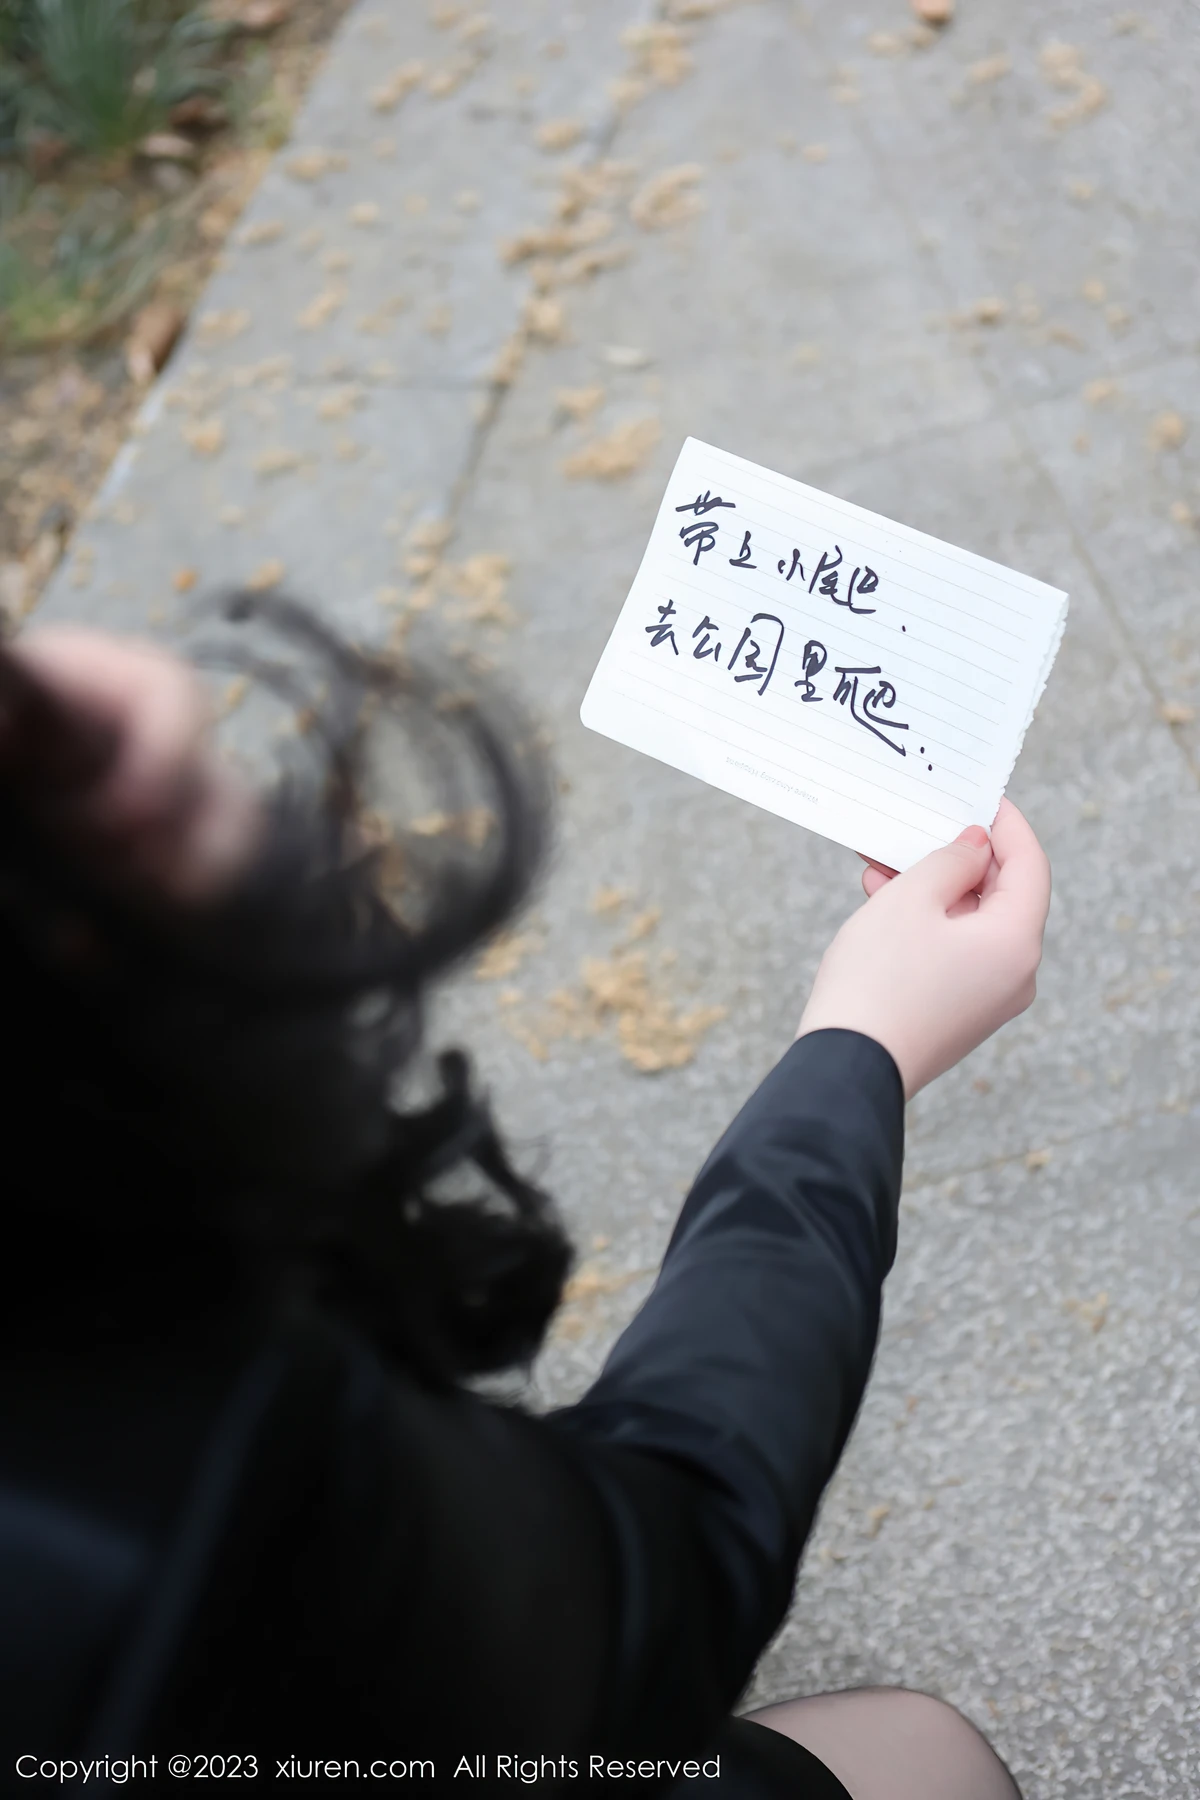 带上小尾巴.
去公园里爬..
Copyright @2023 xiuren.com All Rights Reserved